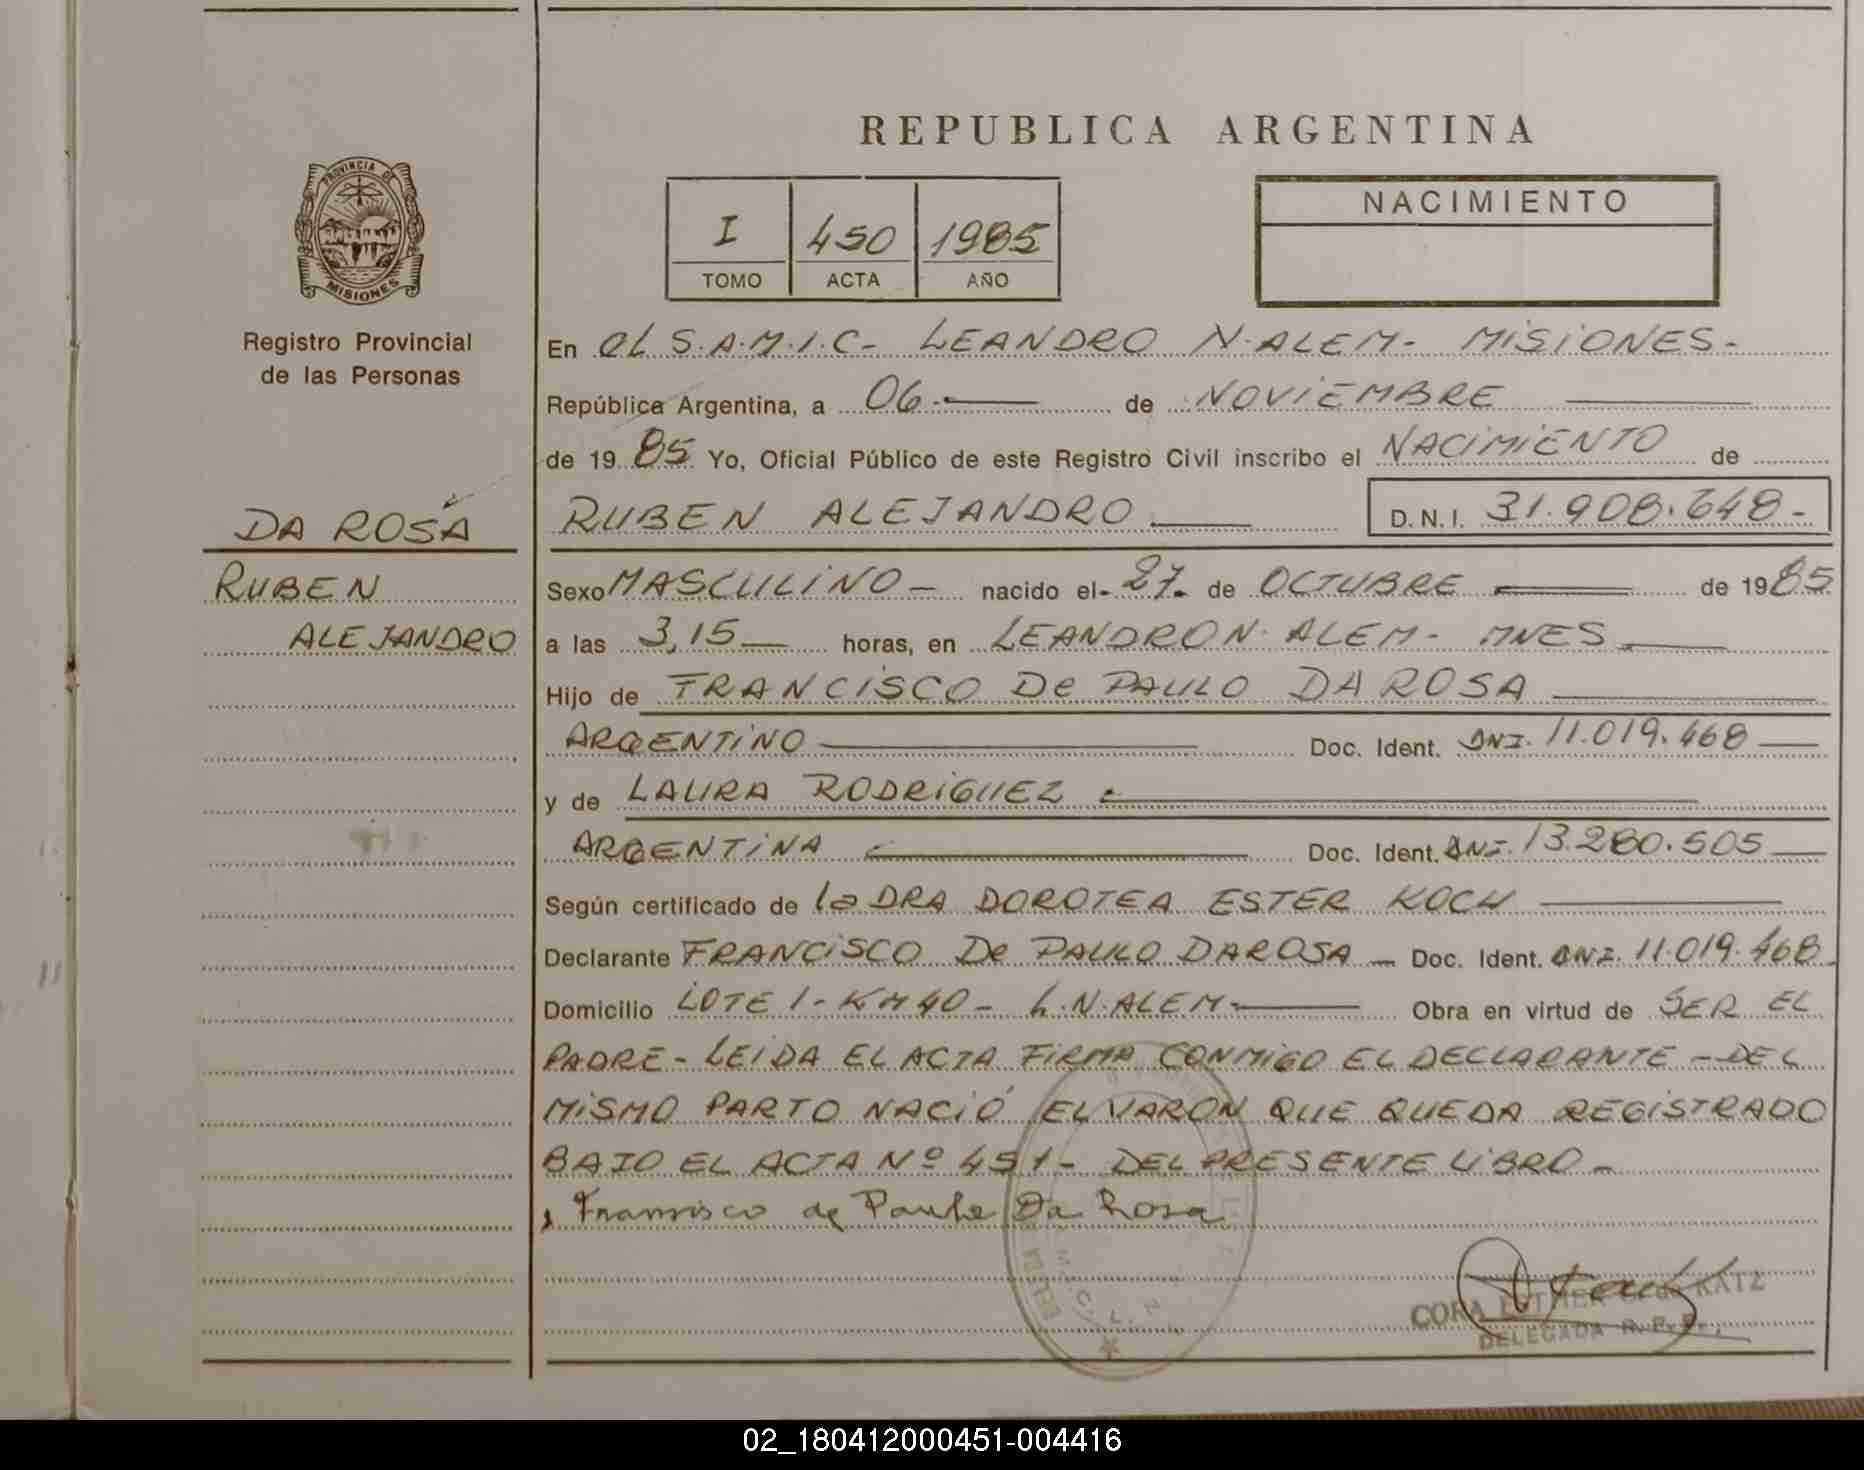 REPUBLICA ARGENTINA
PROVINCIA DE
MISIONES
Registro Provincial
de las Personas
I 450 1985
TOMO ACTA AÑO
NACIMIENTO
En el S.A.M.I.C- LEANDRO N. ALEM- MISIONES-
República Argentina, a 06- de NOVIEMBRE
de 1985 Yo, Oficial Público de este Registro Civil inscribo el NACIMIENTO de
DA ROSA
RUBEN ALEJANDRO
D.N.I. 31.908.648-
RUBEN
ALEJANDRO
Sexo MASCULINO- nacido el- 27- de OCTUBRE de 1985
a las 3,15 horas, en LEANDRO N. ALEM- MNES
Hijo de FRANCISCO De PAULO DA ROSA
ARGENTINO Doc. Ident. DNI. 11.019.468
y de LAURA RODRIGUEZ
ARGENTINA Doc. Ident. DNI. 13.280.505
Según certificado de la DRA DOROTEA ESTER KOCH
Declarante FRANCISCO De PAULO DA ROSA - Doc. Ident. DNI. 11.019.468
Domicilio LOTE 1- KM 40- L.N. ALEM- Obra en virtud de SER EL
PADRE- LEIDA EL ACTA FIRMA CONMIGO EL DECLARANTE -DEL
MISMO PARTO NACIÓ EL VARON QUE QUEDA REGISTRADO
BAJO EL ACTA Nº 451- DEL PRESENTE LIBRO-
Fransisco de Paula Da Rosa
CORA ESTHER KATZ
DELEGADA R. P. P.
02_180412000451-004416